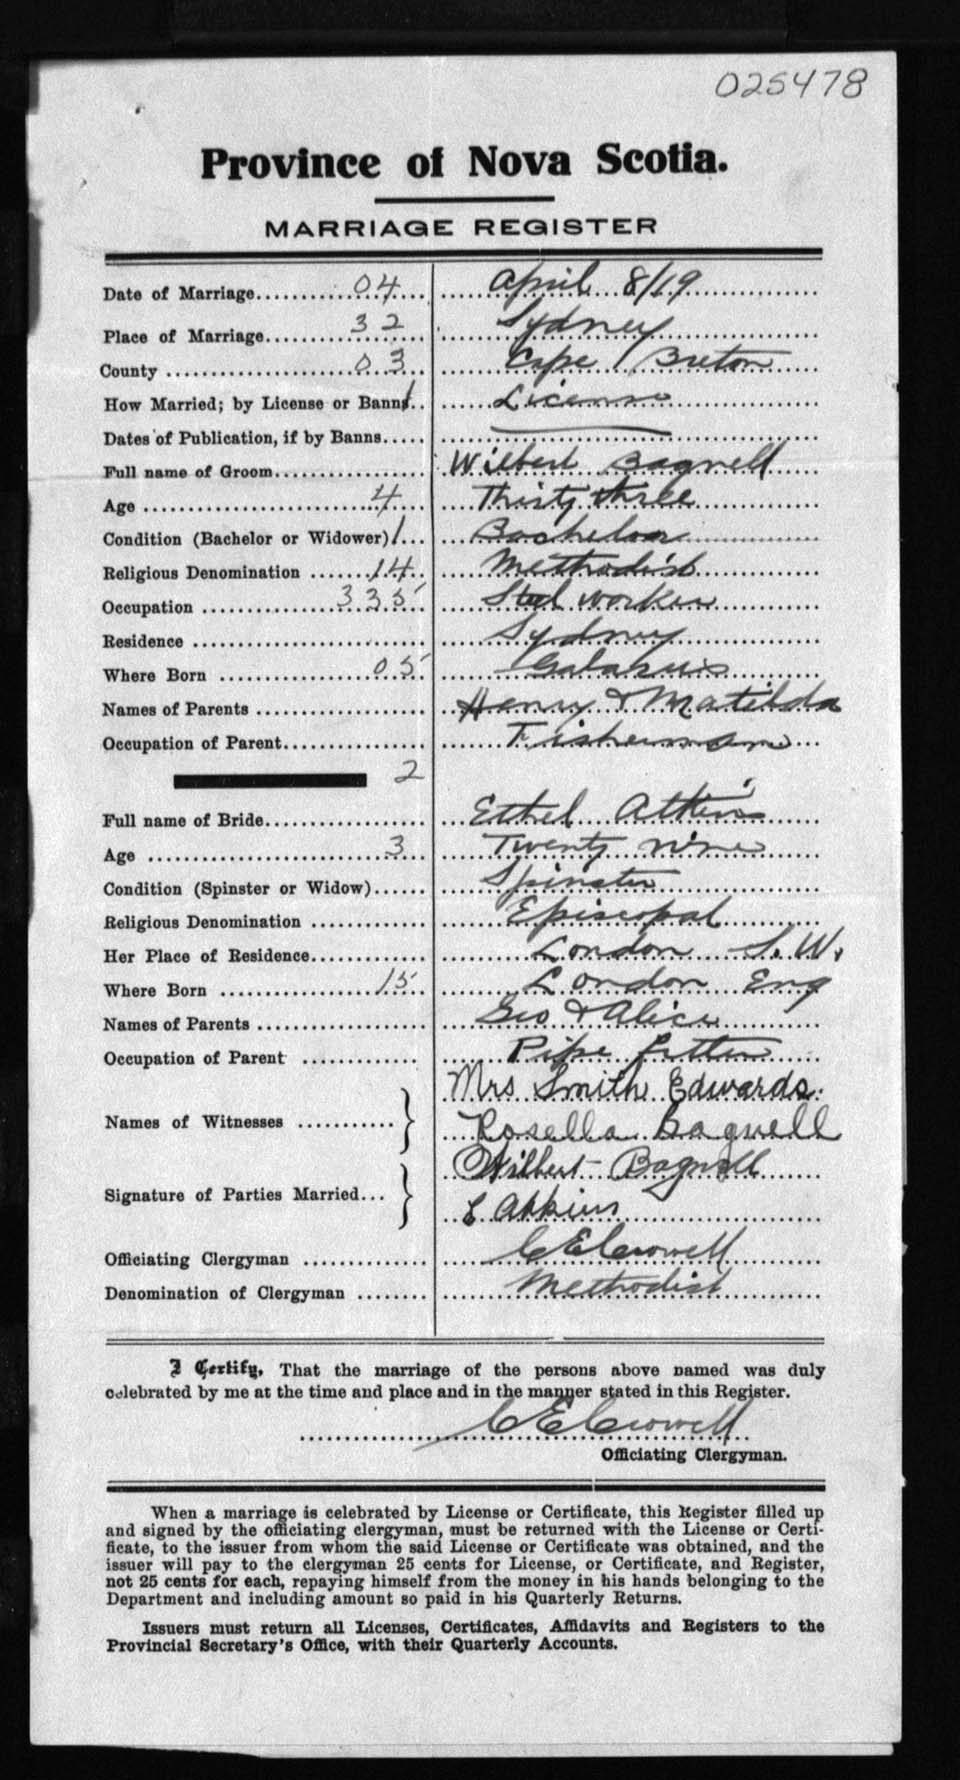 025478
Province of Nova Scotia.
MARRIAGE REGISTER
Date of Marriage 04 April 8/19
Place of Marriage 32 Sydney
County 03 Cape Breton
How Married; by License or Banns 1 License
Dates of Publication, if by Banns
Full name of Groom Wilbert Bagnell
Age 4 Thirty three
Condition (Bachelor or Widower) 1 Bachelor
Religious Denomination 14 Methodist
Occupation 335 Steel worker
Residence Sydney
Where Born 05 Gabarus
Names of Parents Henry & Matilda
Occupation of Parent Fisherman
2
Full name of Bride Ethel Atkins
Age 3 Twenty nine
Condition (Spinster or Widow) Spinster
Religious Denomination Episcopal
Her Place of Residence London S. W.
Where Born 15 London Eng
Names of Parents Geo & Alice
Occupation of Parent Pipe fitter
Mrs Smith Edwards.
Names of Witnesses
Rosella Bagnell
Wilbert Bagnell
Signature of Parties Married
E Atkins
Officiating Clergyman C E Crowell
Denomination of Clergyman Methodist
I Certify, That the marriage of the persons above named was duly
celebrated by me at the time and place and in the manner stated in this Register.
C E Crowell
Officiating Clergyman.
When a marriage is celebrated by License or Certificate, this Register filled up
and signed by the officiating clergyman, must be returned with the License or Certi-
ficate, to the issuer from whom the said License or Certificate was obtained, and the
issuer will pay to the clergyman 25 cents for License, or Certificate, and Register,
not 25 cents for each, repaying himself from the money in his hands belonging to the
Department and including amount so paid in his Quarterly Returns.
Issuers must return all Licenses, Certificates, Affidavits and Registers to the
Provincial Secretary's Office, with their Quarterly Accounts.